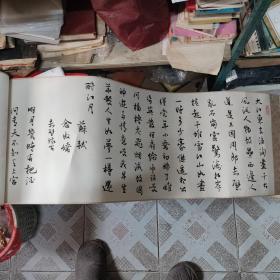 大江東去浪淘盡千古
風流人物故壘西邊人
道是三國周郎赤壁
亂石崩雲驚濤裂岸
捲起千堆雪江山如畫
一時多少豪傑遙想公
瑾當年小喬初嫁了雄
姿英發羽扇綸巾談笑
間檣櫓灰飛煙滅故國
神遊多情應笑我早生
華髮人生如夢一樽還
酹江月
蘇軾
念奴嬌
赤壁懷古
明月幾時有把酒
問青天不知天上宮